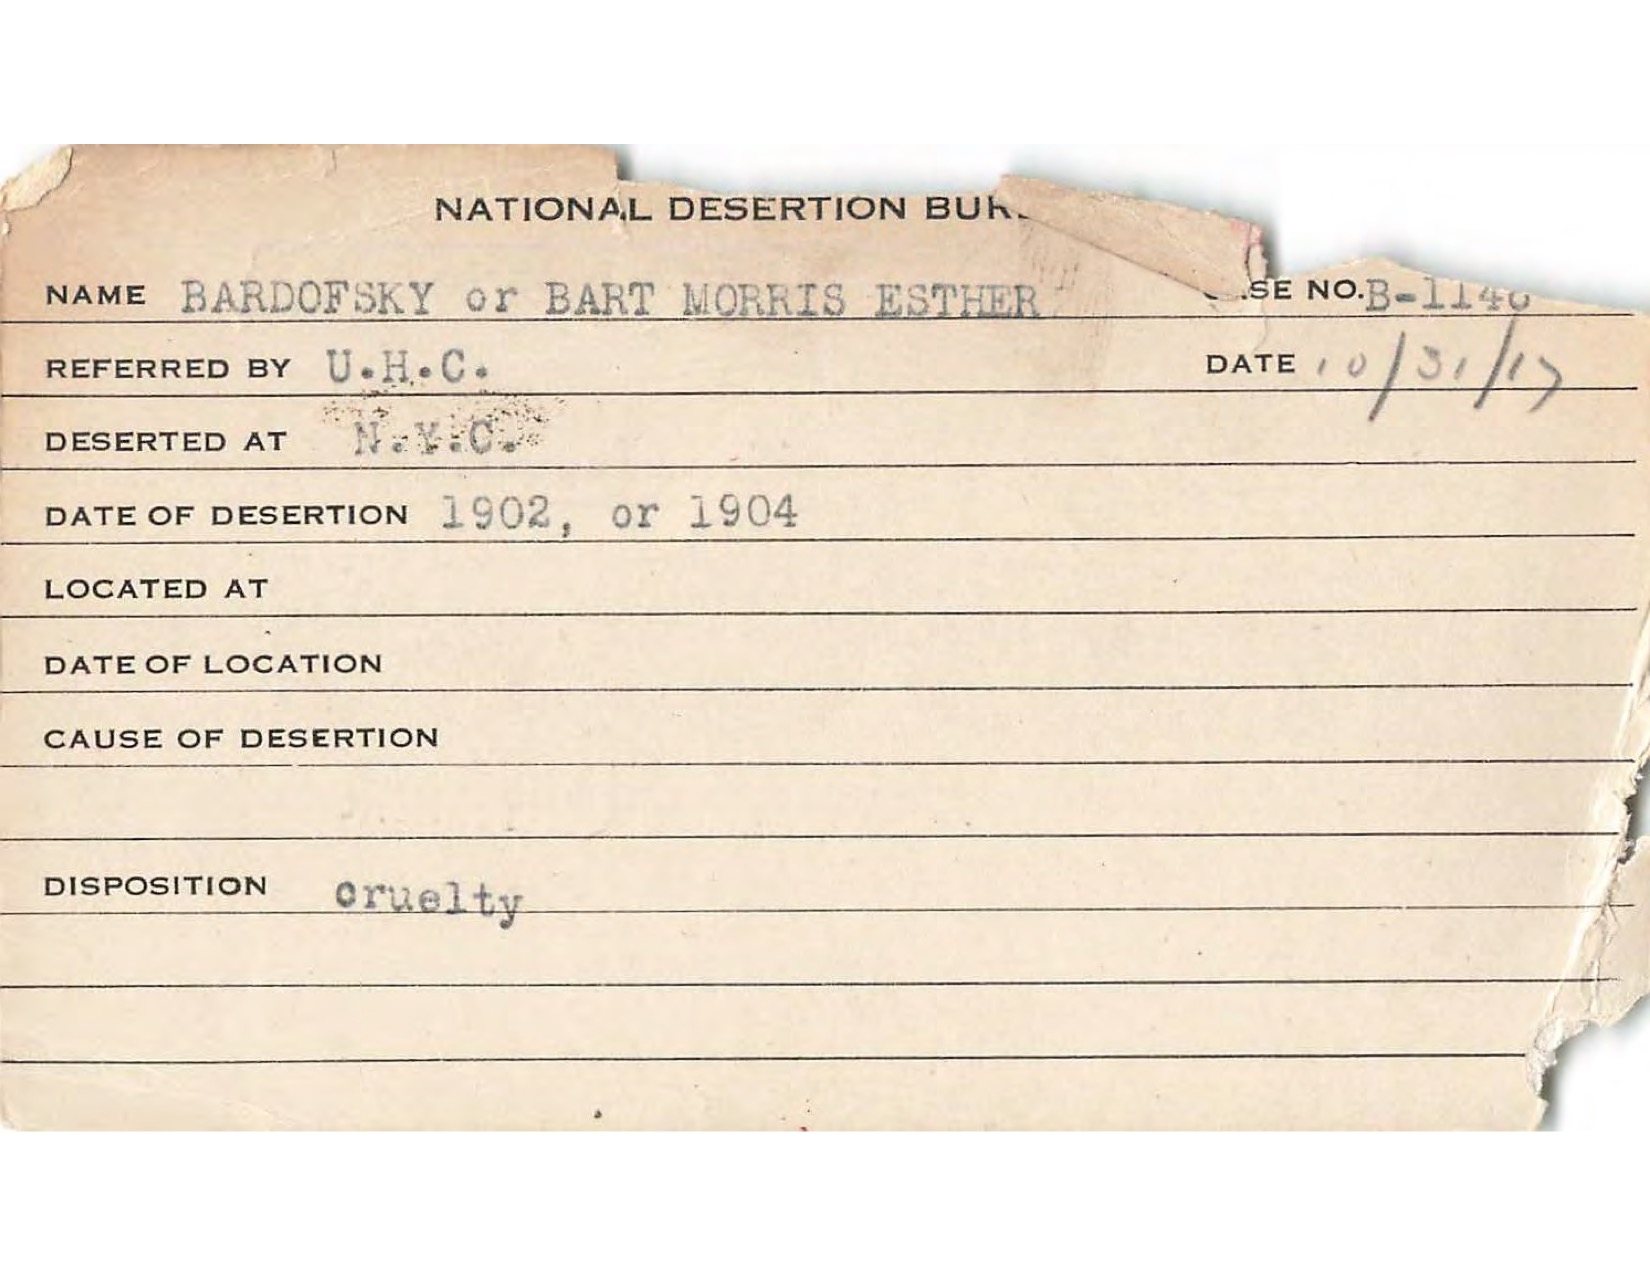 NATIONAL DESERTION
NAME BARDOFSKY or BART MORRIS ESTHER
CASE NO.
REFERRED BY U.H.C.
DATE 10/31/17
DESERTED AT N.Y.C.
DATE OF DESERTION 1902, or 1904
LOCATED AT
DATE OF LOCATION
CAUSE OF DESERTION
DISPOSITION cruelty